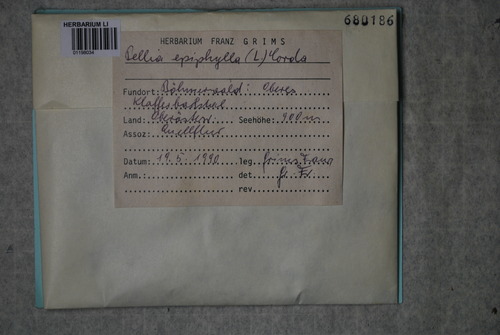 HERBARIUM LI
01198034
680186
HERBARIUM FRANZ GRIMS
Pellia epiphylla (L) Corda
Fundort: Böhmerwald: Oberes
Klafferbachtal
Land: Oberöster. Seehöhe: 900 m
Assoz: Quellflur
Datum: 19. 5. 1990 leg. Grims Franz
Anm.: det. Gr. Fr.
rev.